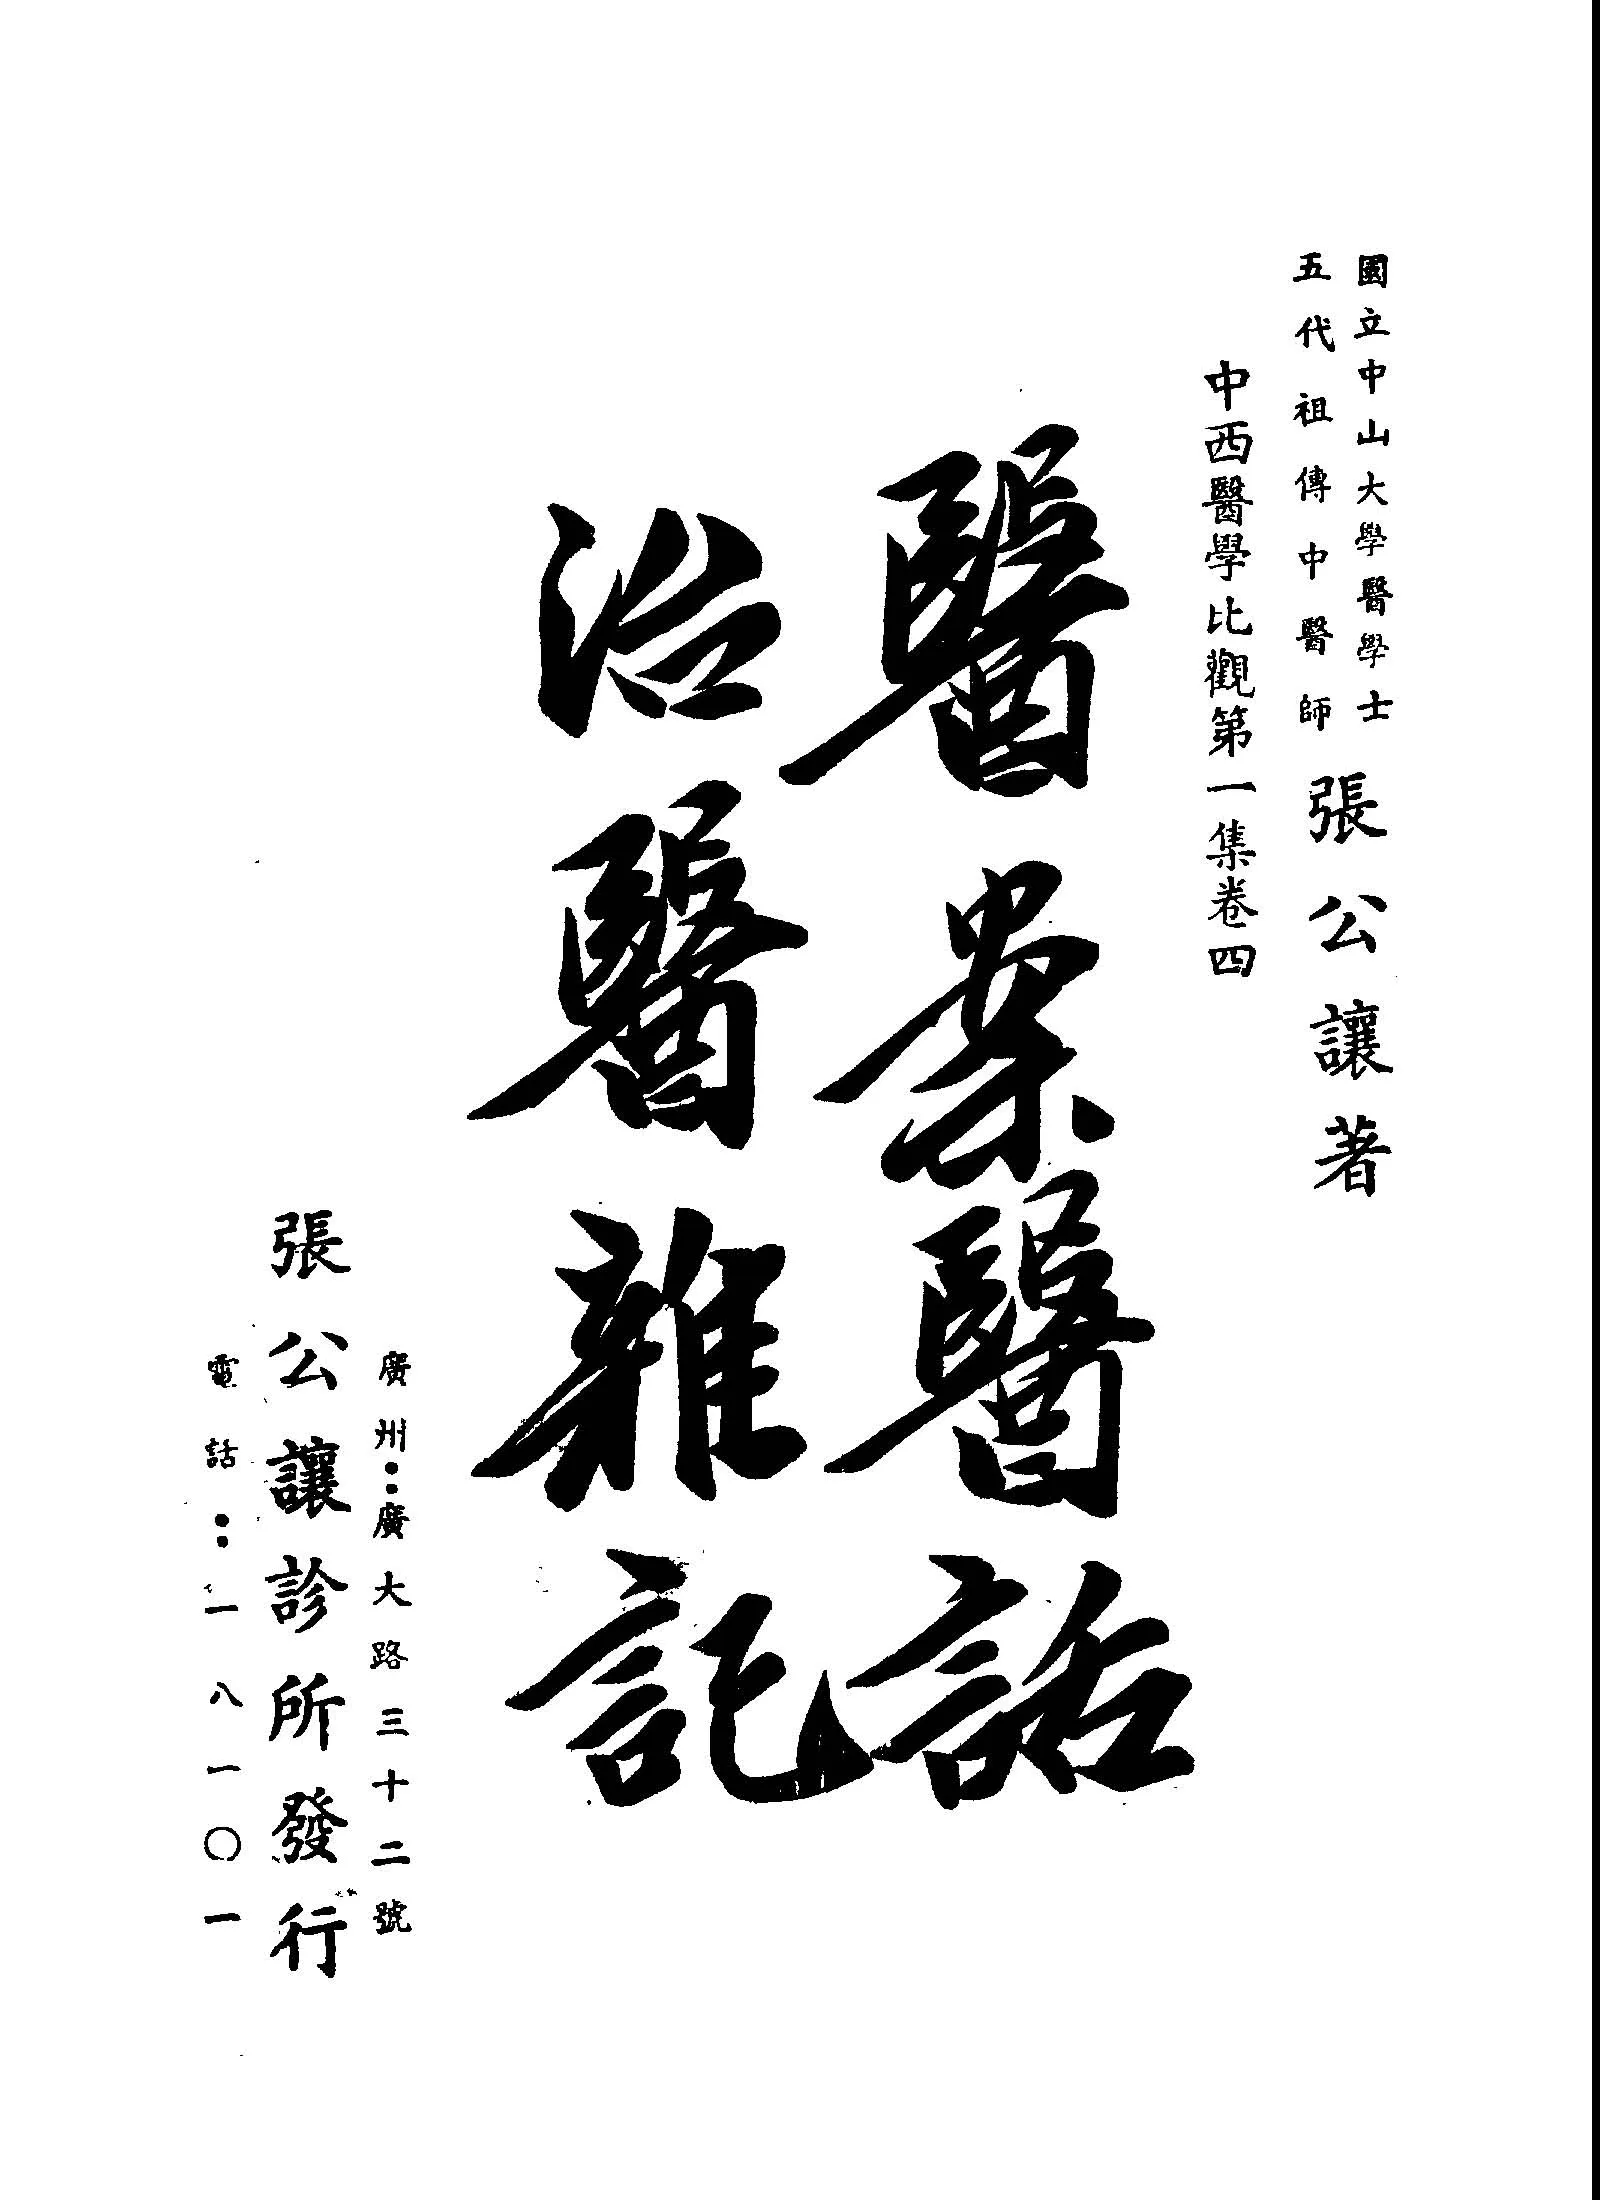 國立中山大學醫學士
五代祖傳中醫師
張公讓著
中西醫學比觀第一集卷四
醫案醫話
治醫雜記
廣州:廣大路三十二號
張公讓診所發行
電話:一八一〇一